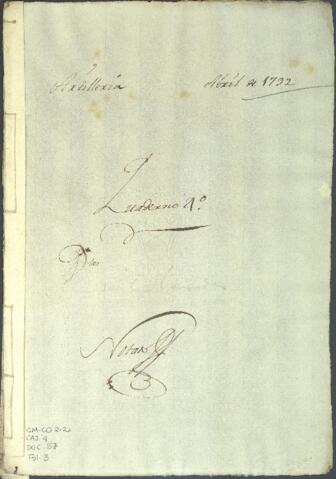 Artilleria Abril de 1792
Quaderno 4º
Dias
Notas
CM-CO 2-2
CAJ. 9
DOC. 57
Fol. 3